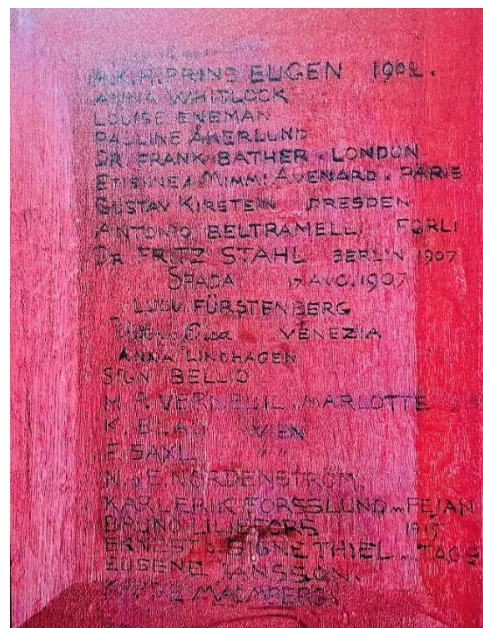 H.K.H. PRINS EUGEN 1902.
ANNA WHITLOCK
LOUISE ENEMAN
PAULINE ÅKERLUND
DR. FRANK BATHER . LONDON
ETIENNE & MIMMI AVENARD . PARIS
GUSTAV KIRSTEIN DRESDEN
ANTONIO BELTRAMELLI FORLI
DR FRITZ STAHL BERLIN 1907
SPADA 17 AUG. 1907
LUDV. FÜRSTENBERG
VENEZIA
ANNA LINDHAGEN
SIGN BELLIO
M. P. VERNEUIL . MARLOTTE
K. BLAU WIEN
F. SAXL " "
N. & E. NORDENSTRÖM.
KARL-ERIK FORSSLUND
BRUNO LILJEFORS 1915
ERNEST & SIGNE THIEL
EUGENE JANSSON.
MALMBERG.